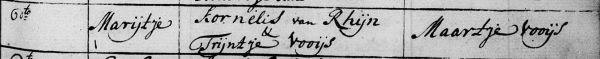 6de Marijtje Kornelis van Rhijn Maartje Vooijs
& Trijntje Vooijs